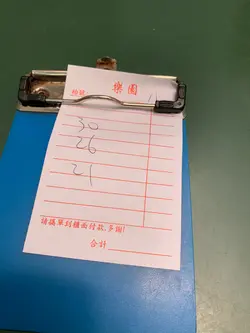 樂園
30
26
21
請攜單到櫃面付款,多謝!
合計